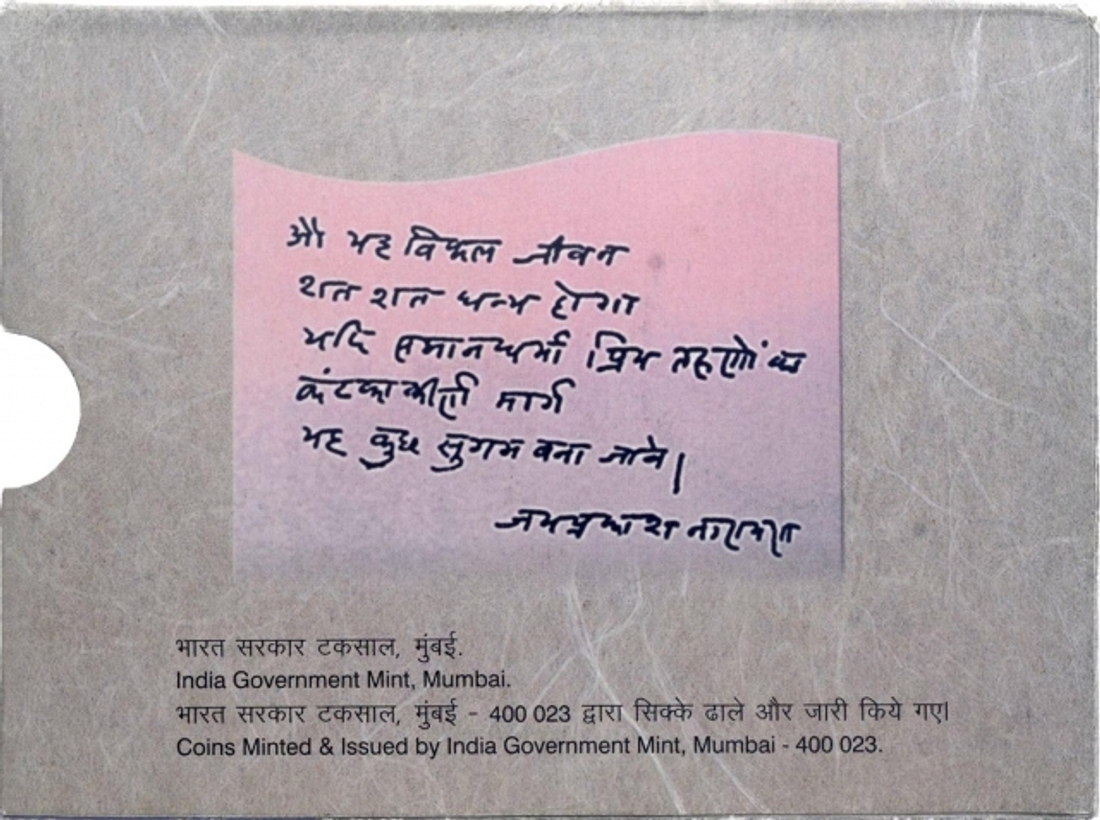 औ यह विफल जीवन
शत शत धन्य होगा
यदि समानधर्मा प्रिय तरुणों का
कंटकाकीर्ण मार्ग
यह कुछ सुगम बना जावे।
जयप्रकाश नारायण
भारत सरकार टकसाल, मुंबई.
India Government Mint, Mumbai.
भारत सरकार टकसाल, मुंबई - 400 023 द्वारा सिक्के ढाले और जारी किये गए।
Coins Minted & Issued by India Government Mint, Mumbai - 400 023.